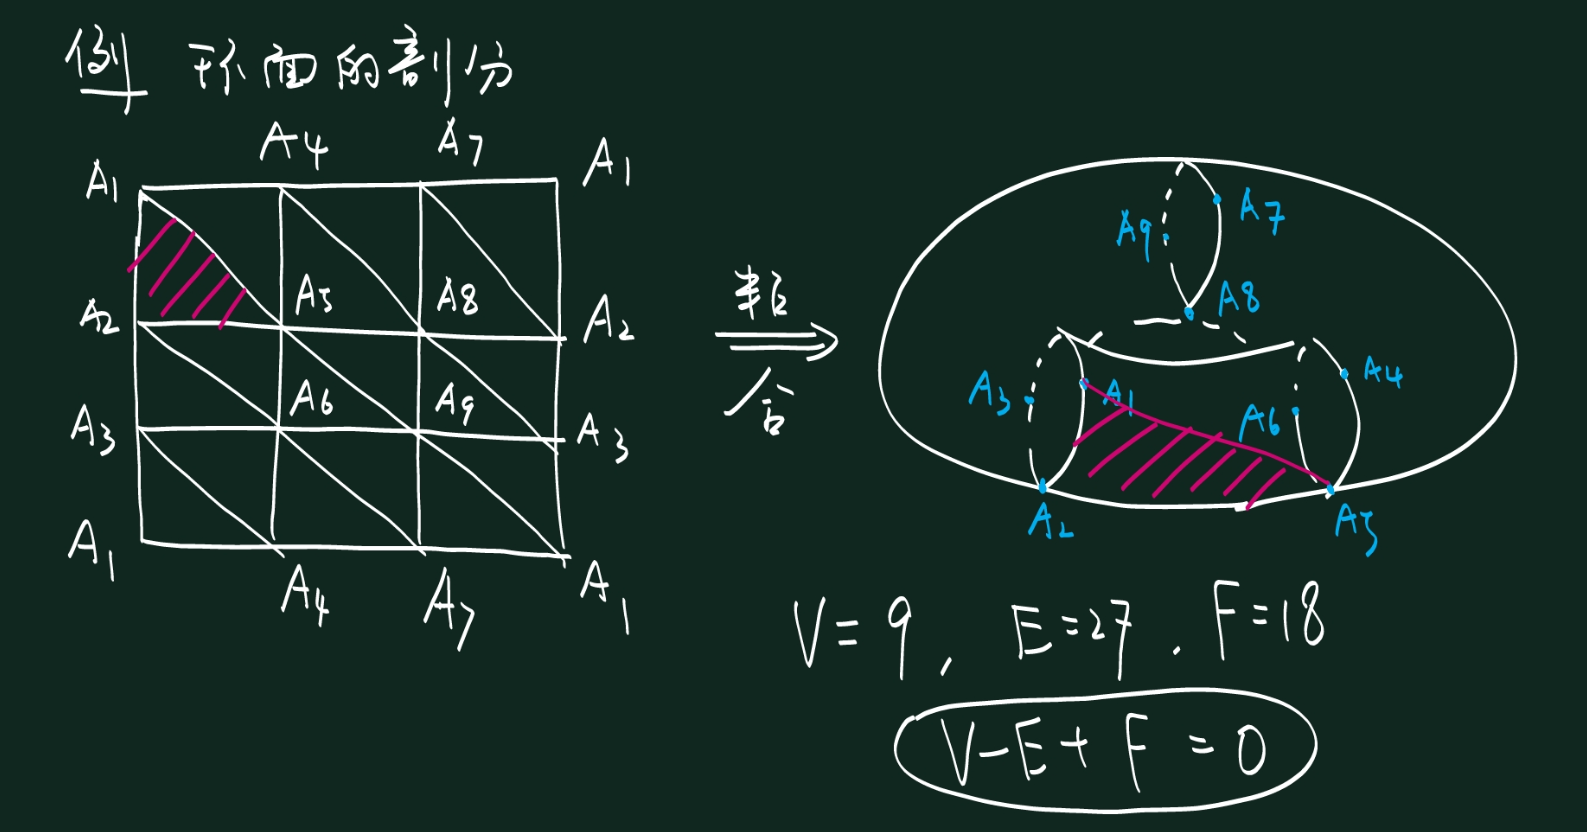 例 环面的剖分
A4 A7
A1 A1
A5 A8
A2 A2
A6 A9
A3 A3
A1 A1
A4 A7
粘
合
A7
A9
A8
A4
A3 A1
A6
A2 A5
V=9, E=27. F=18
V-E+F=0